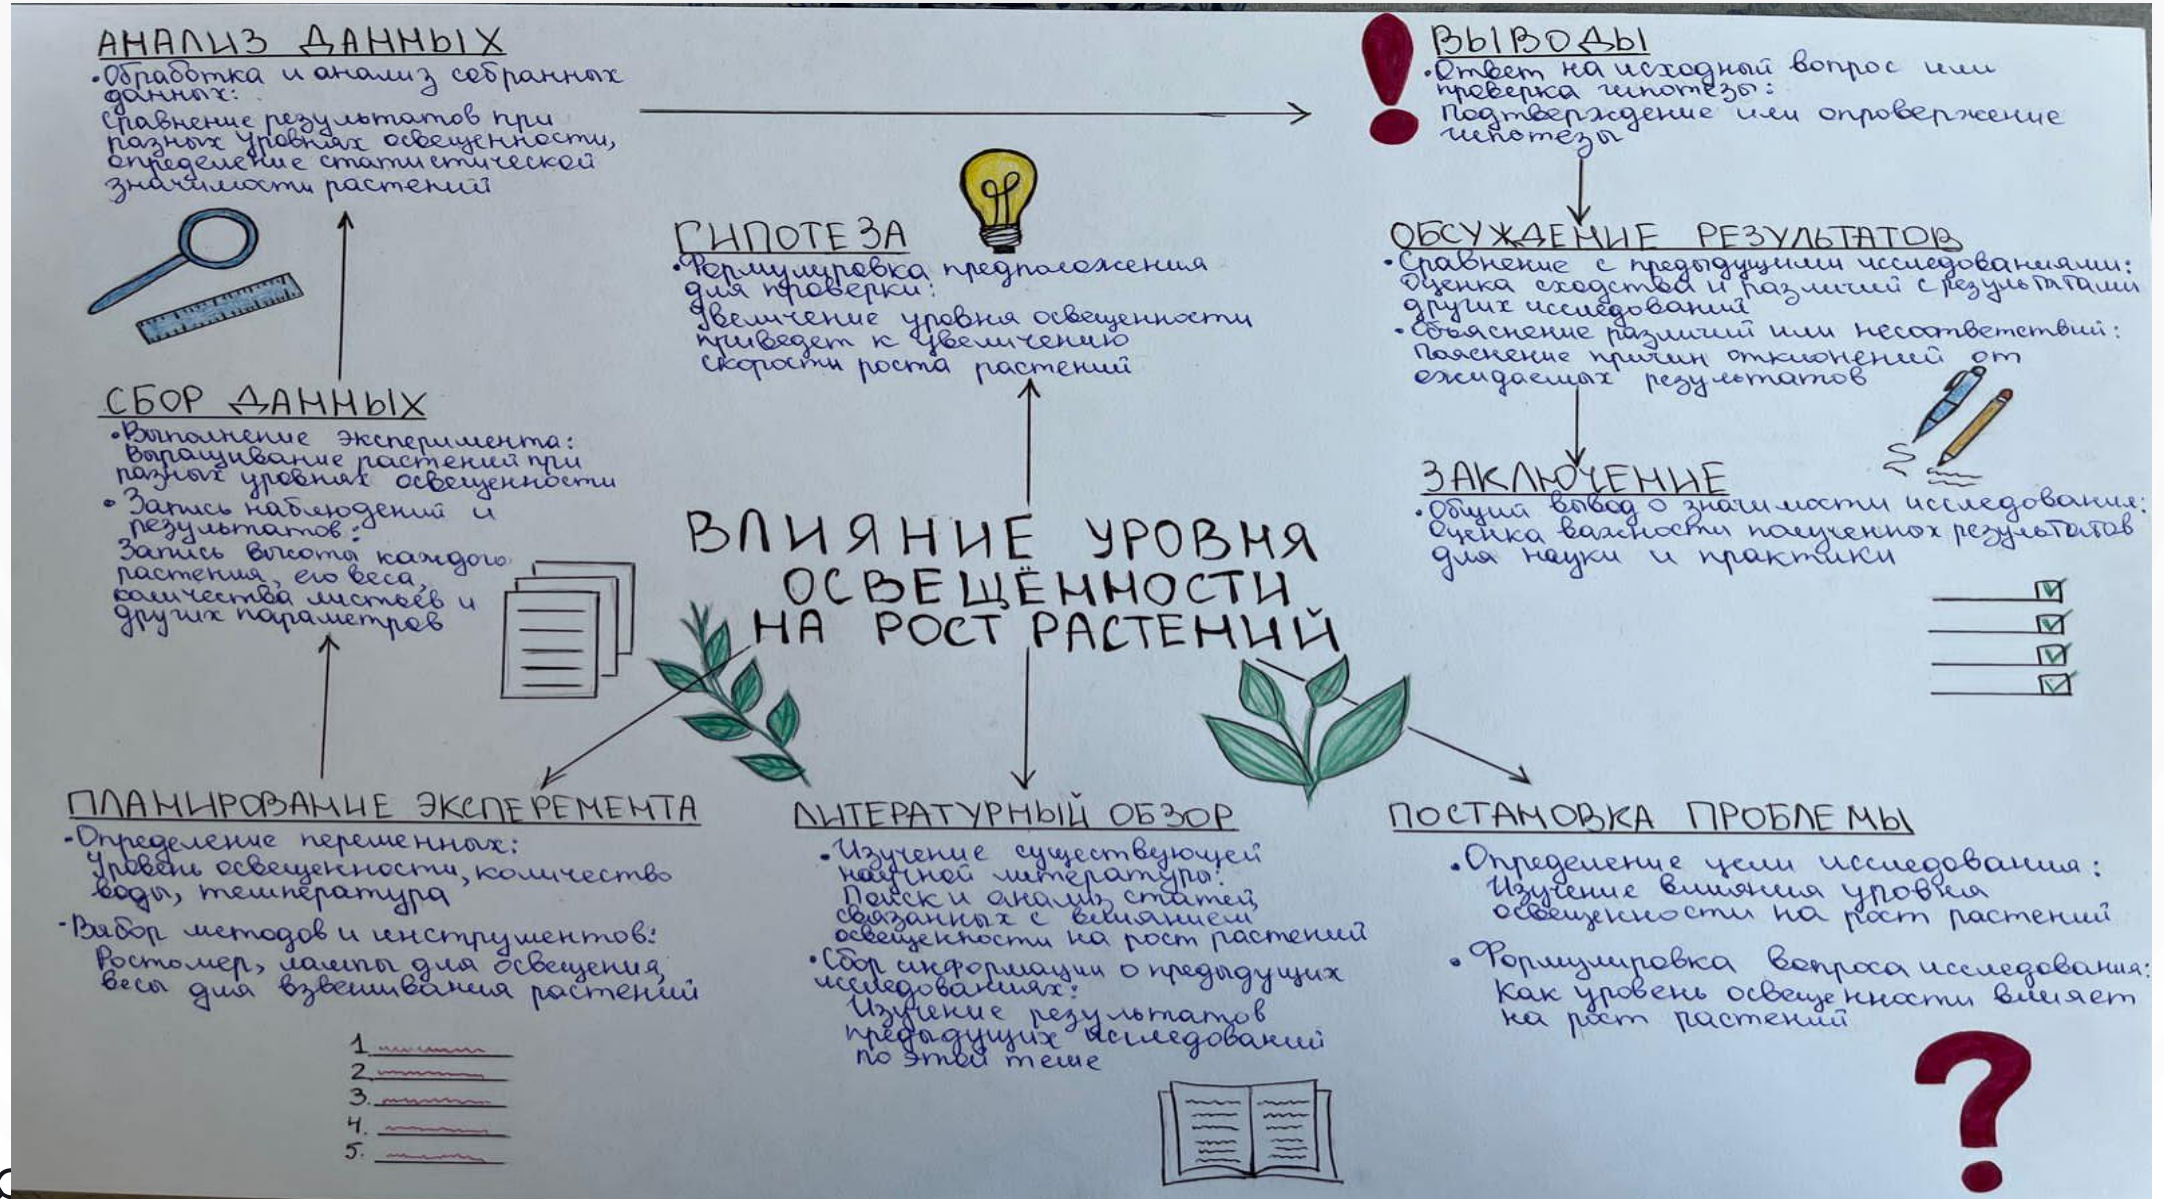 АНАЛИЗ ДАННЫХ
•Обработка и анализ собранных
данных:
сравнение результатов при
разных уровнях освещенности,
определение статистической
значимости растений
ВЫВОДЫ
•Ответ на исходный вопрос или
проверка гипотезы:
Подтверждение или опровержение
гипотезы
ГИПОТЕЗА
•Формулировка предположения
для проверки:
Увеличение уровня освещенности
приведет к увеличению
скорости роста растений
ОБСУЖДЕНИЕ РЕЗУЛЬТАТОВ
•Сравнение с предыдущими исследованиями:
Оценка сходства и различий с результатами
других исследований
•Объяснение различий или несоответствий:
Пояснение причин отклонений от
ожидаемых результатов
СБОР ДАННЫХ
•Выполнение эксперимента:
Выращивание растений при
разных уровнях освещенности
• Запись наблюдений и
результатов:
Запись высоты каждого
растения, его веса,
количества листьев и
других параметров
ЗАКЛЮЧЕНИЕ
•Общий вывод о значимости исследования:
Оценка важности полученных результатов
для науки и практики
ВЛИЯНИЕ УРОВНЯ
ОСВЕЩЁННОСТИ
НА РОСТ РАСТЕНИЙ
ПЛАНИРОВАНИЕ ЭКСПЕРЕМЕНТА
•Определение переменных:
Уровень освещенности, количество
воды, температура
•Выбор методов и инструментов:
Ростомер, лампы для освещения,
весы для взвешивания растений
1.
2.
3.
4.
5.
ЛИТЕРАТУРНЫЙ ОБЗОР
•Изучение существующей
научной литературы:
Поиск и анализ статей,
связанных с влиянием
освещенности на рост растений
•Сбор информации о предыдущих
исследованиях:
Изучение результатов
предыдущих исследований
по этой теме
ПОСТАНОВКА ПРОБЛЕМЫ
•Определение цели исследования:
Изучение влияния уровня
освещенности на рост растений
• Формулировка вопроса исследования:
Как уровень освещенности влияет
на рост растений
?